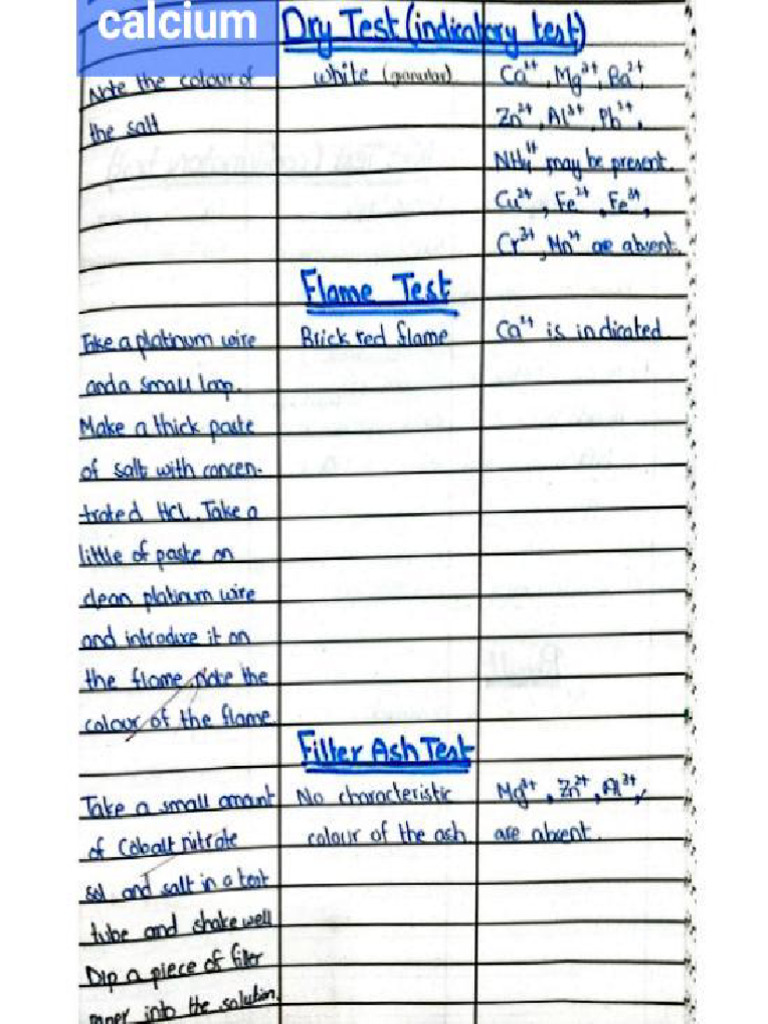 calcium
Dry Test (indicatory test)
Note the colour of
the salt
white (granular)
Ca²⁺, Mg²⁺, Ba²⁺,
Zn²⁺, Al³⁺, Pb²⁺,
NH₄⁺ may be present.
Cu²⁺, Fe²⁺, Fe³⁺,
Cr³⁺, Mn²⁺ are absent.
Flame Test
Take a platinum wire
and a small loop.
Make a thick paste
of salt with concen-
trated HCl. Take a
little of paste on
clean platinum wire
and introduce it on
the flame, note the
colour of the flame
Brick red flame
Ca²⁺ is indicated
Filter Ash Test
Take a small amount
of Cobalt nitrate
sol and salt in a test
tube and shake well
Dip a piece of filter
paper into the solution.
No characteristic
colour of the ash
Mg²⁺, Zn²⁺, Al³⁺,
are absent.